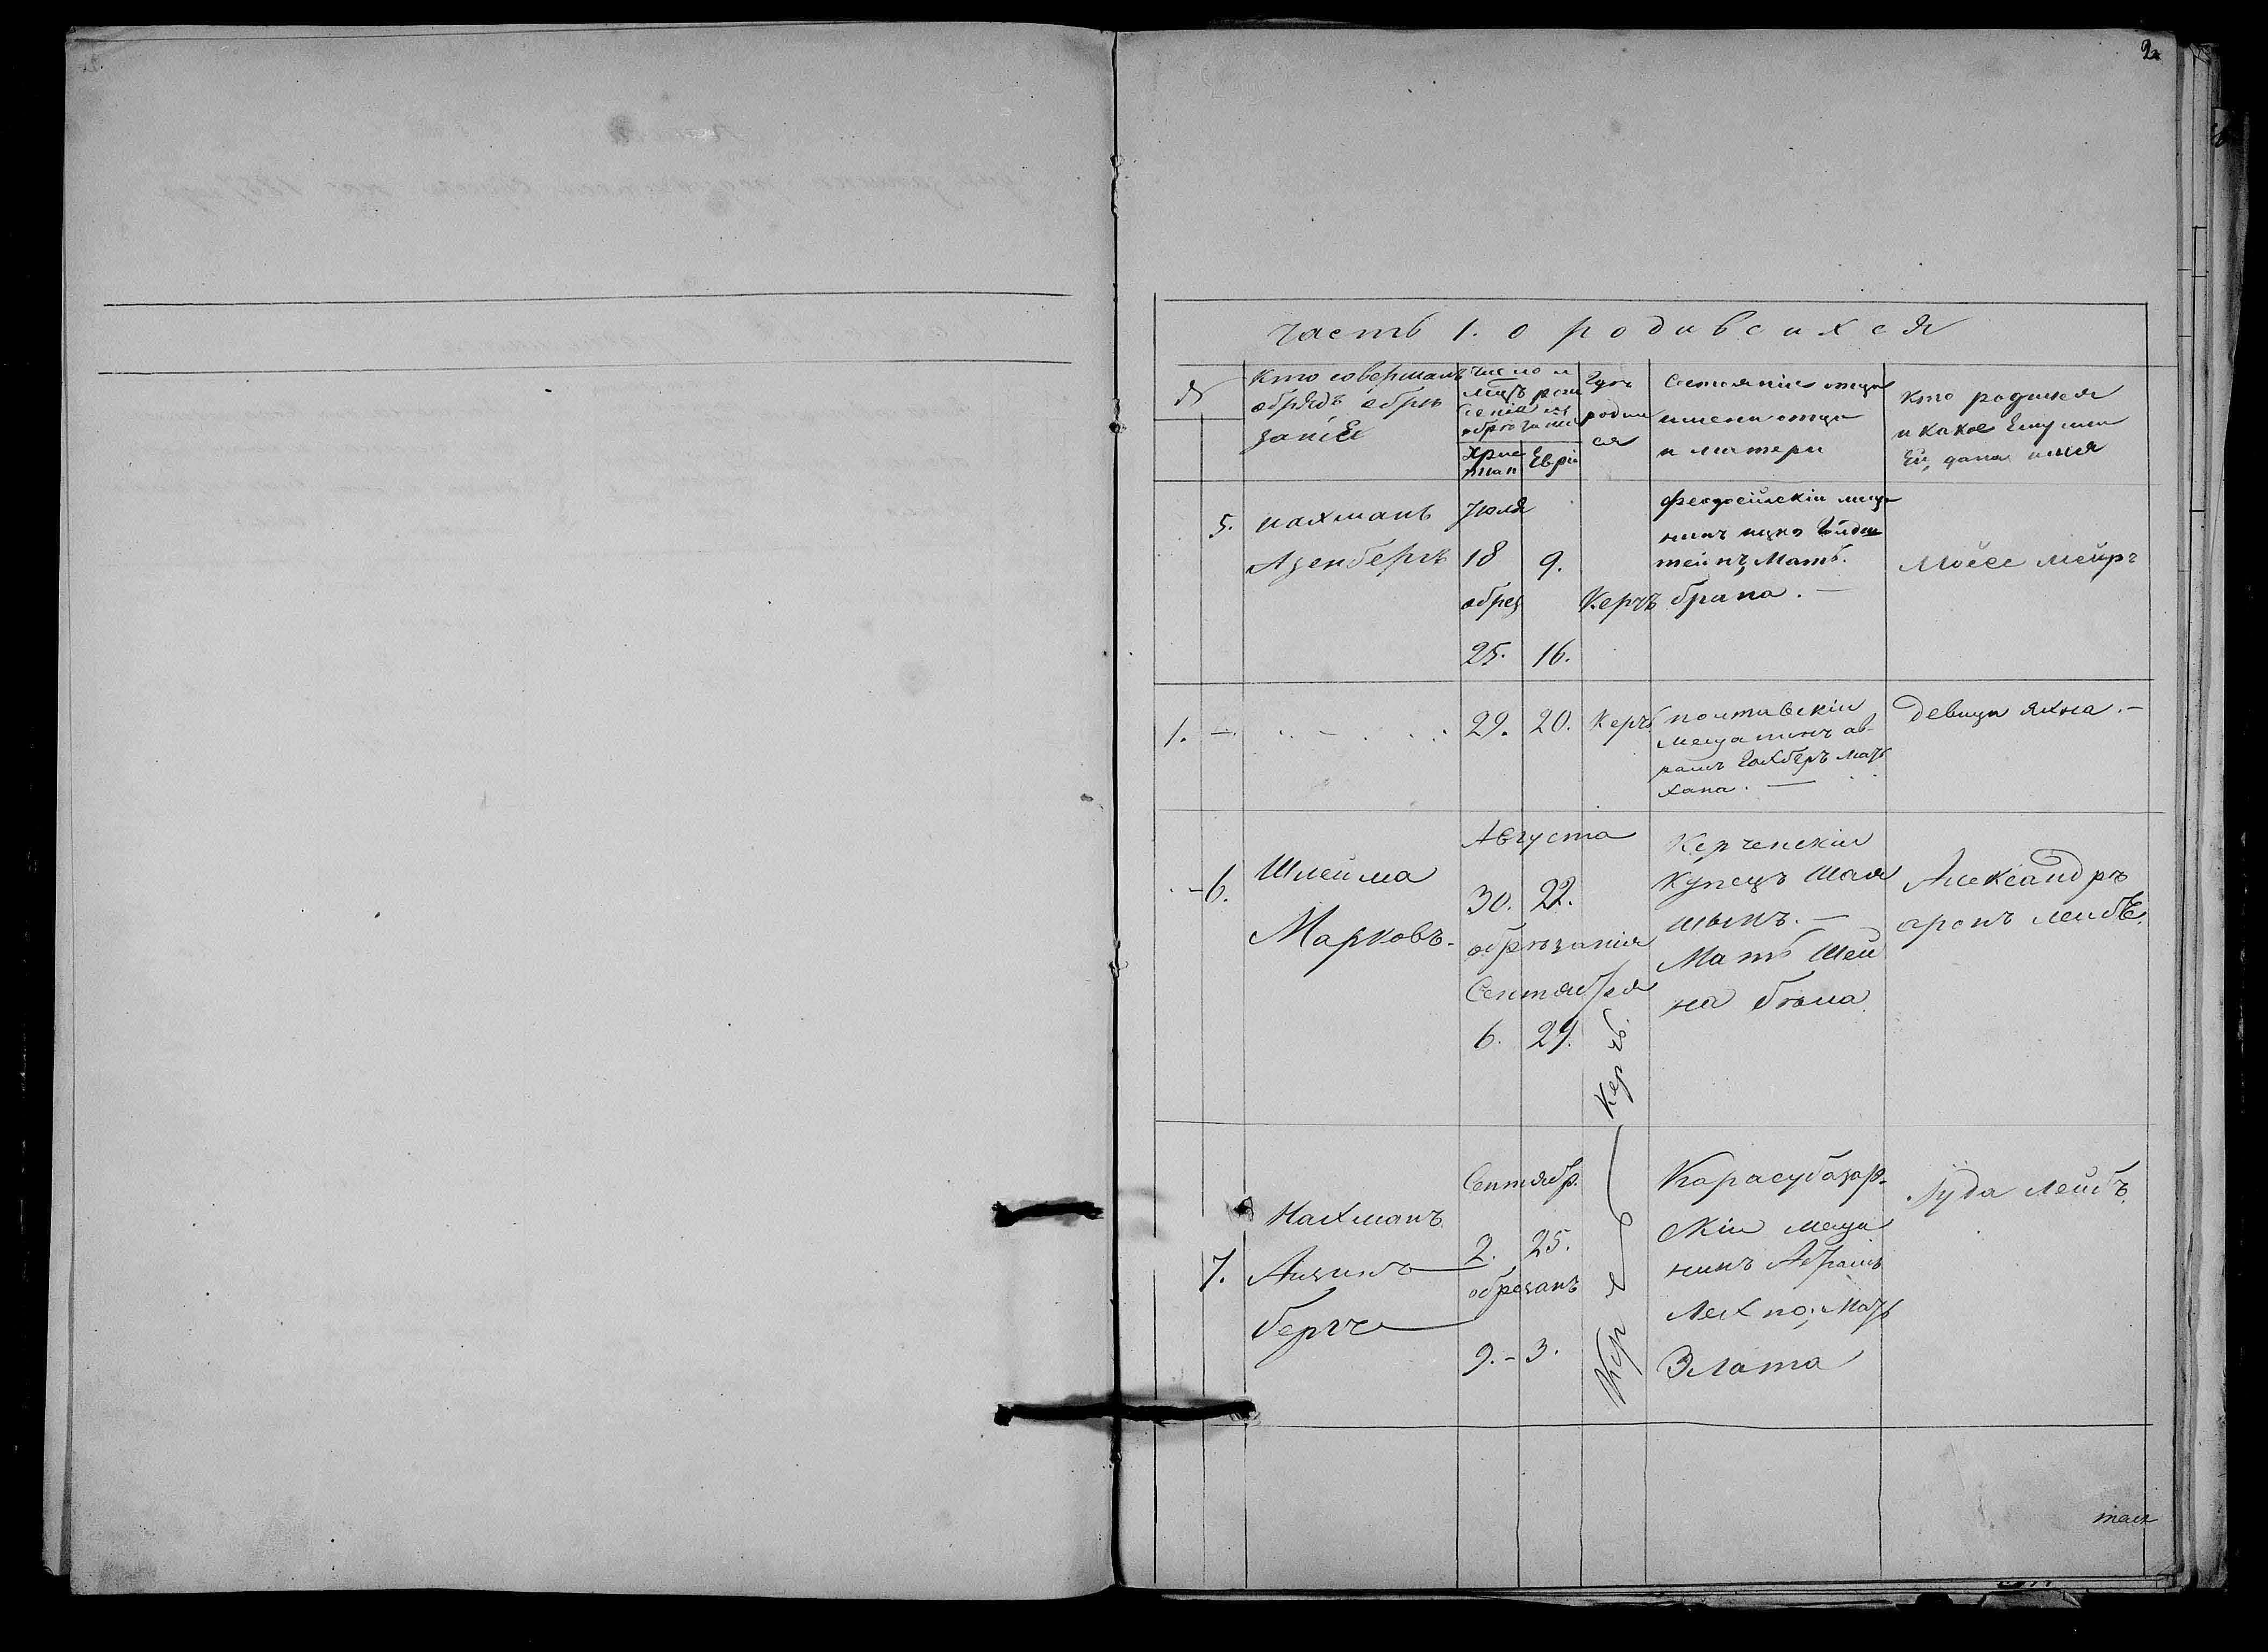 2
Часть 1. о родившихся
№
Кто совершалъ
обрядъ обрѣ
занiе
Число и
обрѣзанiя
Хрис
тiан
Еврей
Гдѣ
родил
ся
Состоянiе отца
имена отца
и матери
Кто родился
и какое Ему или
Ей, дано имя
5.
нахманъ
Азенбергъ
Iюля
18
9.
обрез
25.
16.
Керчь
феодосiйскiй меща
нинъ ицко
тейнъ, Мать.
брана. —
Мойсе Мейръ
1.
29.
20.
Керчь
полтавскiй
мещанинъ ав-
рамъ мать
хана. —
девица яхна. —
6.
Шлейма
Марковъ.
Августа
30.
22.
обрѣзанiя
Сентября
6.
29.
Керчь.
Керченскiй
Купецъ Шая
Мать Шей
на бѣла
Александръ
аронъ лейбъ.
7.
Нахманъ
Айзинъ
бергъ
Сентябр.
2.
25.
обрезанъ
9. —
3.
Керчь
Карасубазар-
скiй меща
нинъ Абрамъ
Лехно, Мать
Злата
Iуда Лейбъ.